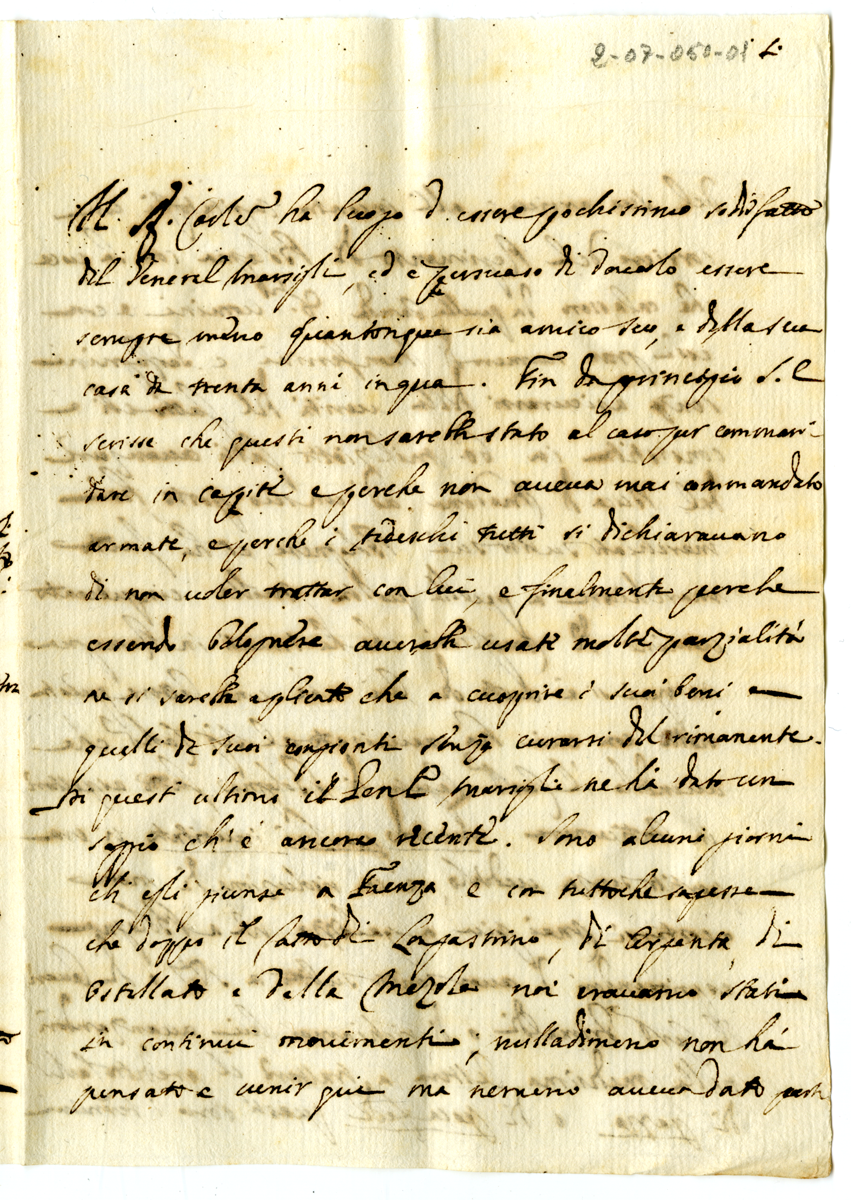 2-07-050-01 L.
Il S.r Card.e ha luogo d'essere pochissimo sodisfatto
del General Marsigli, ed è persuaso di doverlo essere
sempre meno quantonque sia amico suo, e della sua
casa da trenta anni in qua. Fin da principio S. E
scrisse che questi non sarebbe stato al caso per comman-
dare in capite e perche non aveva mai commandato
armate, e perche i tedeschi tutti si dichiaravano
di non voler trattar con lui, e finalmente perche
essendo Bolognese averebbe usate molte parzialità
ne si sarebbe aplicato che a cuoprire i suoi beni e
quelli de suoi congionti senza curarsi del rimanente.
Di questi ultimo il Gen.l Marsigli ne hà dato un
saggio ch'è ancora recente. Sono alcuni giorni
ch'egli giunse a Faenza e con tuttoche sapesse
che doppo il fatto di Longastrino, di Argenta, di
Ostellato e della Mezola noi eravamo stati
in continui movimenti, nulladimeno non hà
pensato e venir qui ma nemeno aveva dato parte